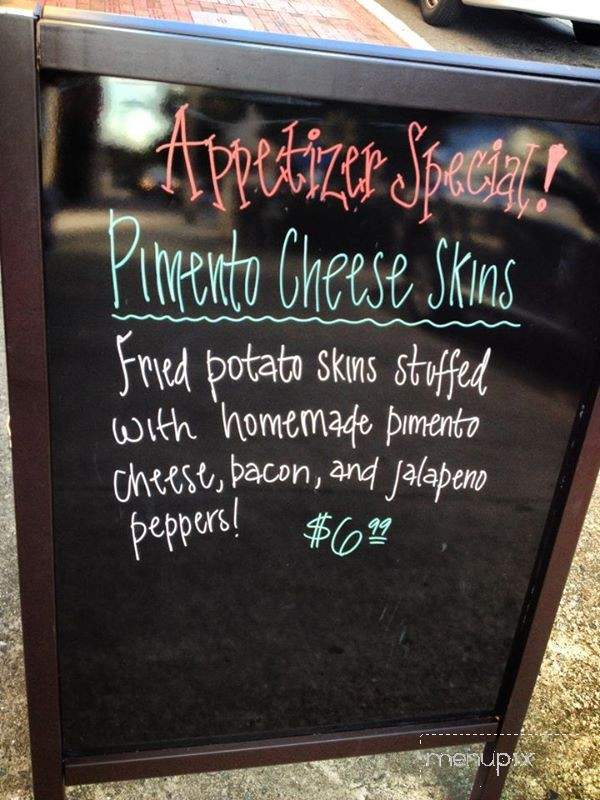 Appetizer Special!
Pimento Cheese Skins
Fried potato skins stuffed
with homemade pimento
cheese, bacon, and jalapeno
peppers! $6.99
menupix